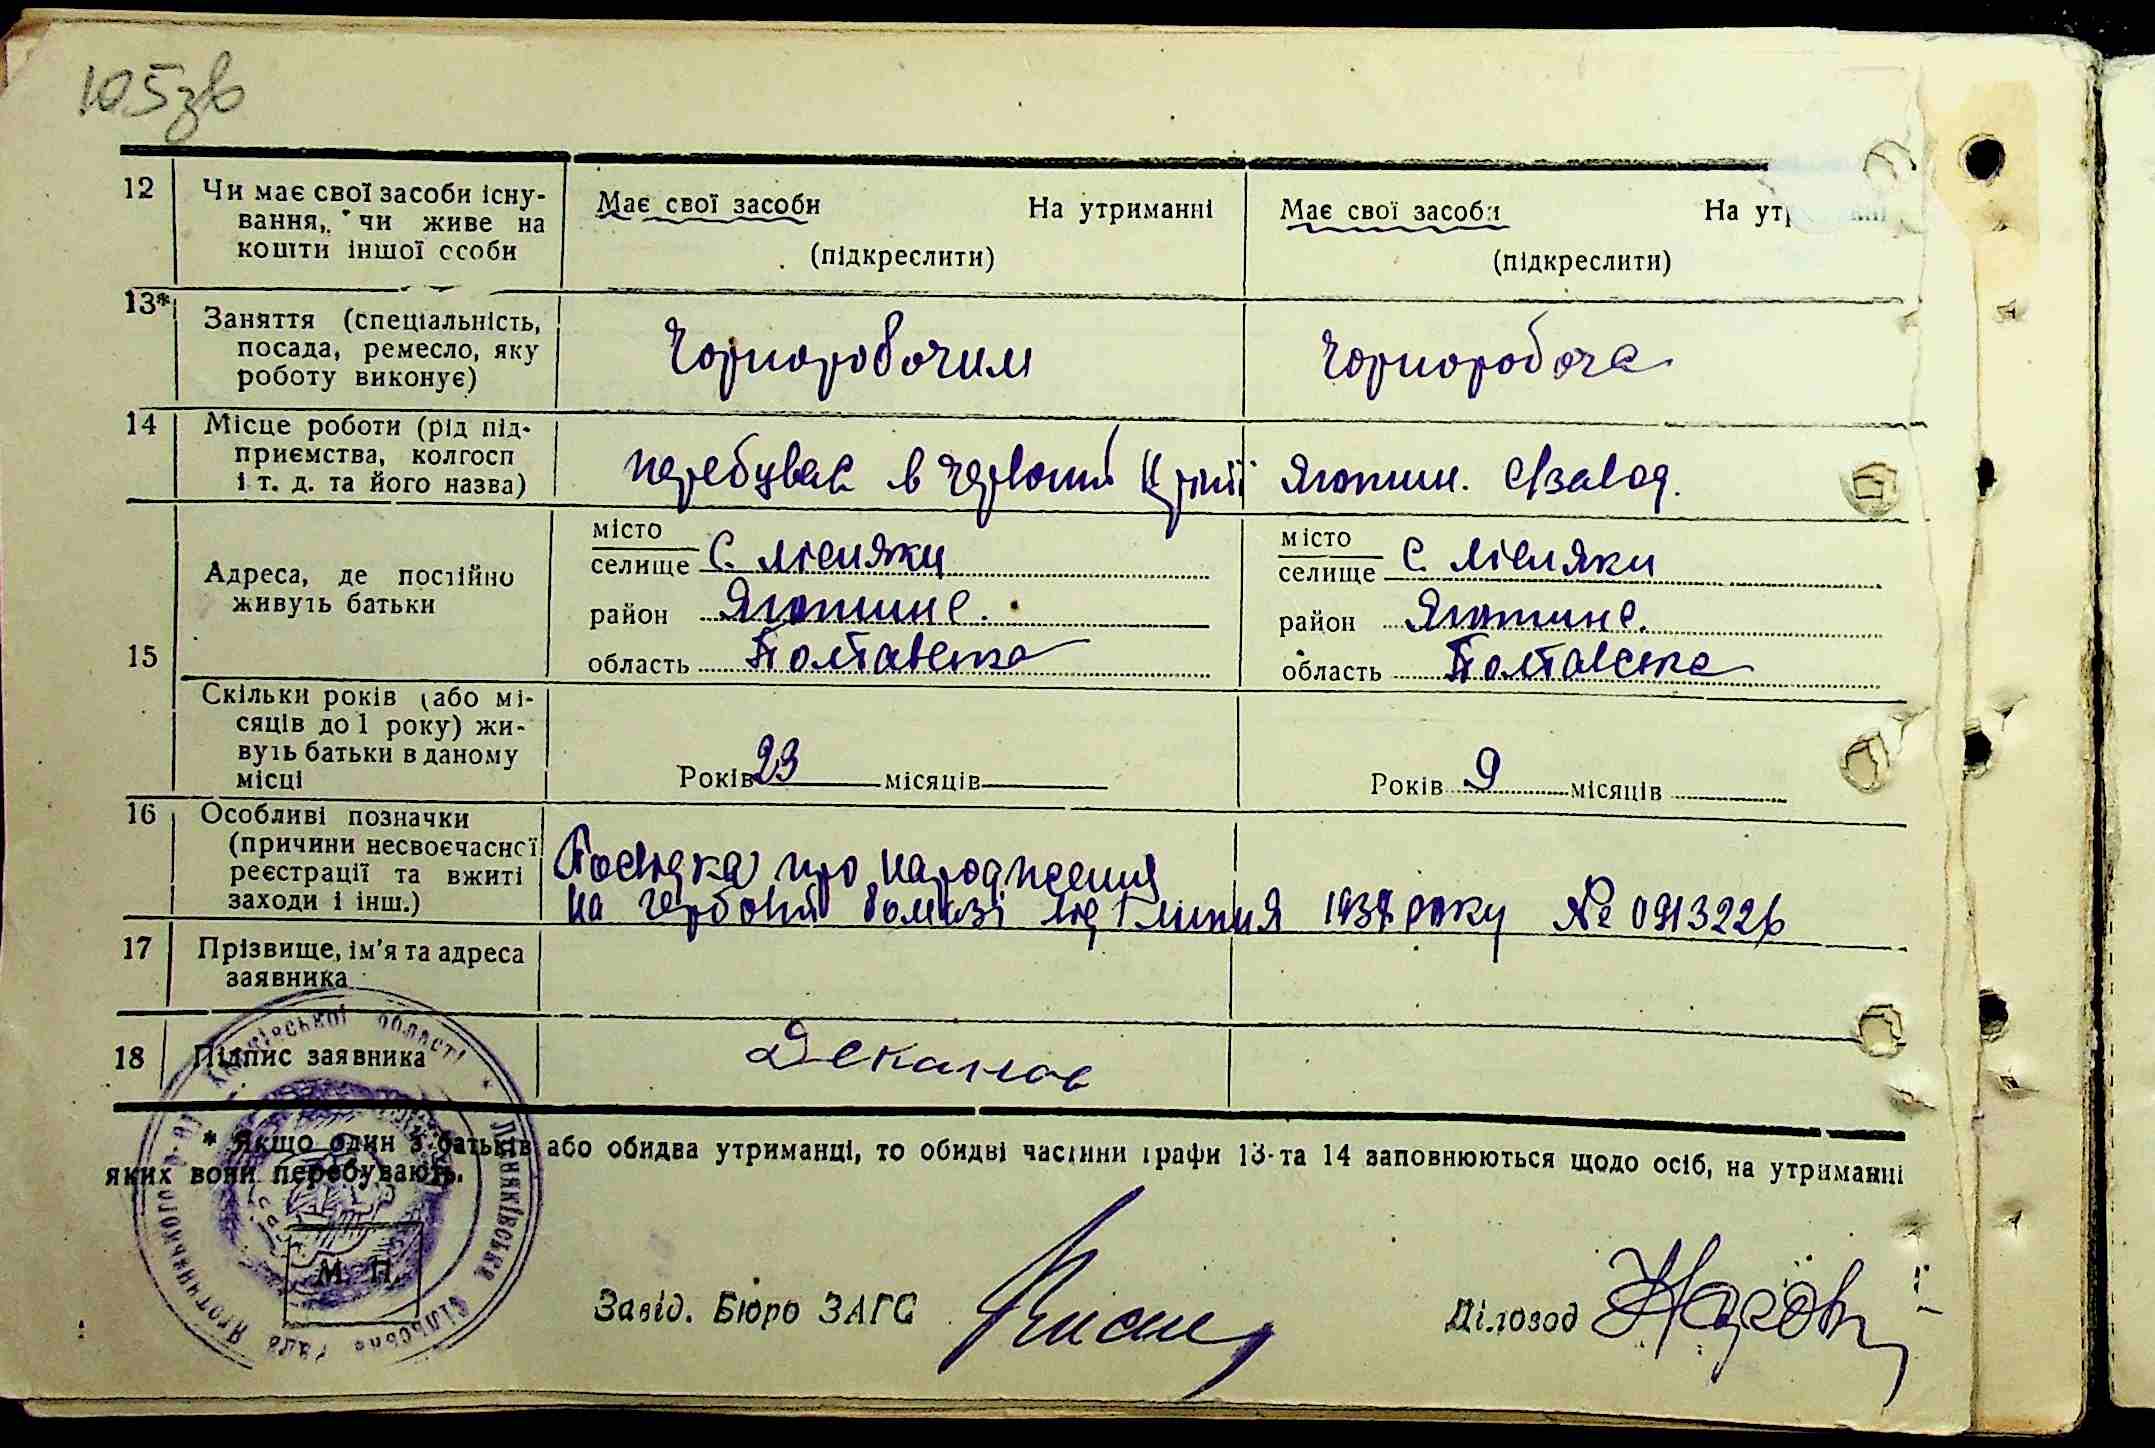 105зв
12 Чи має свої засоби існу-
вання, чи живе на
кошти іншої особи
Має свої засоби На утриманні
(підкреслити)
Має свої засоби На утр
(підкреслити)
13* Заняття (спеціальність,
посада, ремесло, яку
роботу виконує)
Чорноробочим
Чорноробоча
14 Місце роботи (рід під-
приємства, колгосп
і т. д. та його назва)
перебуває в червоній Армії
Яготин.
15 Адреса, де постійно
живуть батьки
місто
селище с. Лісняки
район Яготинс.
область Полтавська
місто
селище с. Лісняки
район Яготинс.
область Полтавська
Скільки років (або мі-
сяців до 1 року) жи-
вуть батьки в даному
місці
Років 23 місяців
Років 9 місяців
16 Особливі позначки
(причини несвоєчасної
реєстрації та вжиті
заходи і інш.)
про народження
на гербовій 1 липня року № 0913226
17 Прізвище, ім'я та адреса
заявника
18 Підпис заявника
М. П.
* Якщо один з батьків або обидва утриманці, то обидві частини графи 13 та 14 заповнюються щодо осіб, на утриманні
яких вони перебувають.
Завід. Бюро ЗАГС
Діловод